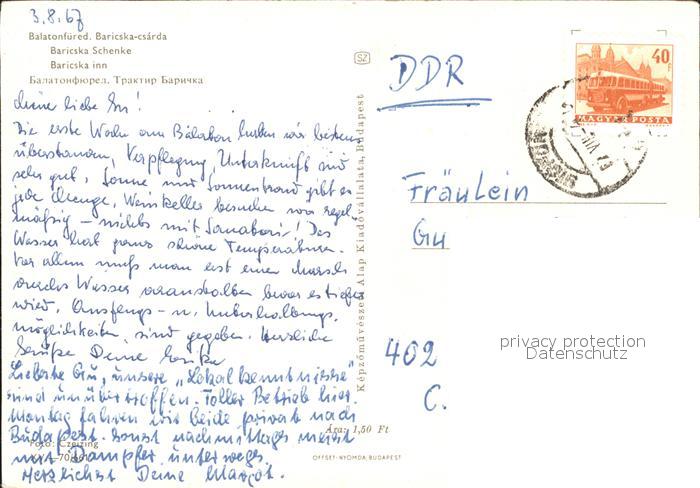 3.8.67
Balatonfüred. Baricska-csárda
Baricska Schenke
Baricska inn
Балатонфюред. Трактир Баричка
Meine liebe Gu!
Die erste Woche am Balaton haben wir bestens
überstanden, Verpflegung, Unterkunft sind
sehr gut, Sonne und Sonnenbrand gibt es
jede Menge, Weinkeller besuchen wir regel
mäßig – nichts mit
Wasser hat ganz schöne Temperaturen.
Vor allem muß man erst einen Marsch
durchs Wasser aushalten bevor es tiefer
wird. Ausflugs- u. Unterhaltungs
möglichkeiten sind gegeben. Herzliche
Grüße Deine
Liebste Gu, unsere „Lokalkenntnisse"
sind unübertroffen. Toller Betrieb hier.
Montag fahren wir beide privat nach
Budapest. Sonst nachmittags meist
mit Dampfer unterwegs.
Herzlichst Deine Margot.
Foto: Czeizing
OFFSET-NYOMDA BUDAPEST
Ára: 1,50 Ft
Képzőművészeti Alap Kiadóvállalata, Budapest
SZ
DDR
40 F
MAGYAR POSTA
Fräulein
Gu
402
C.
privacy protection
Datenschutz